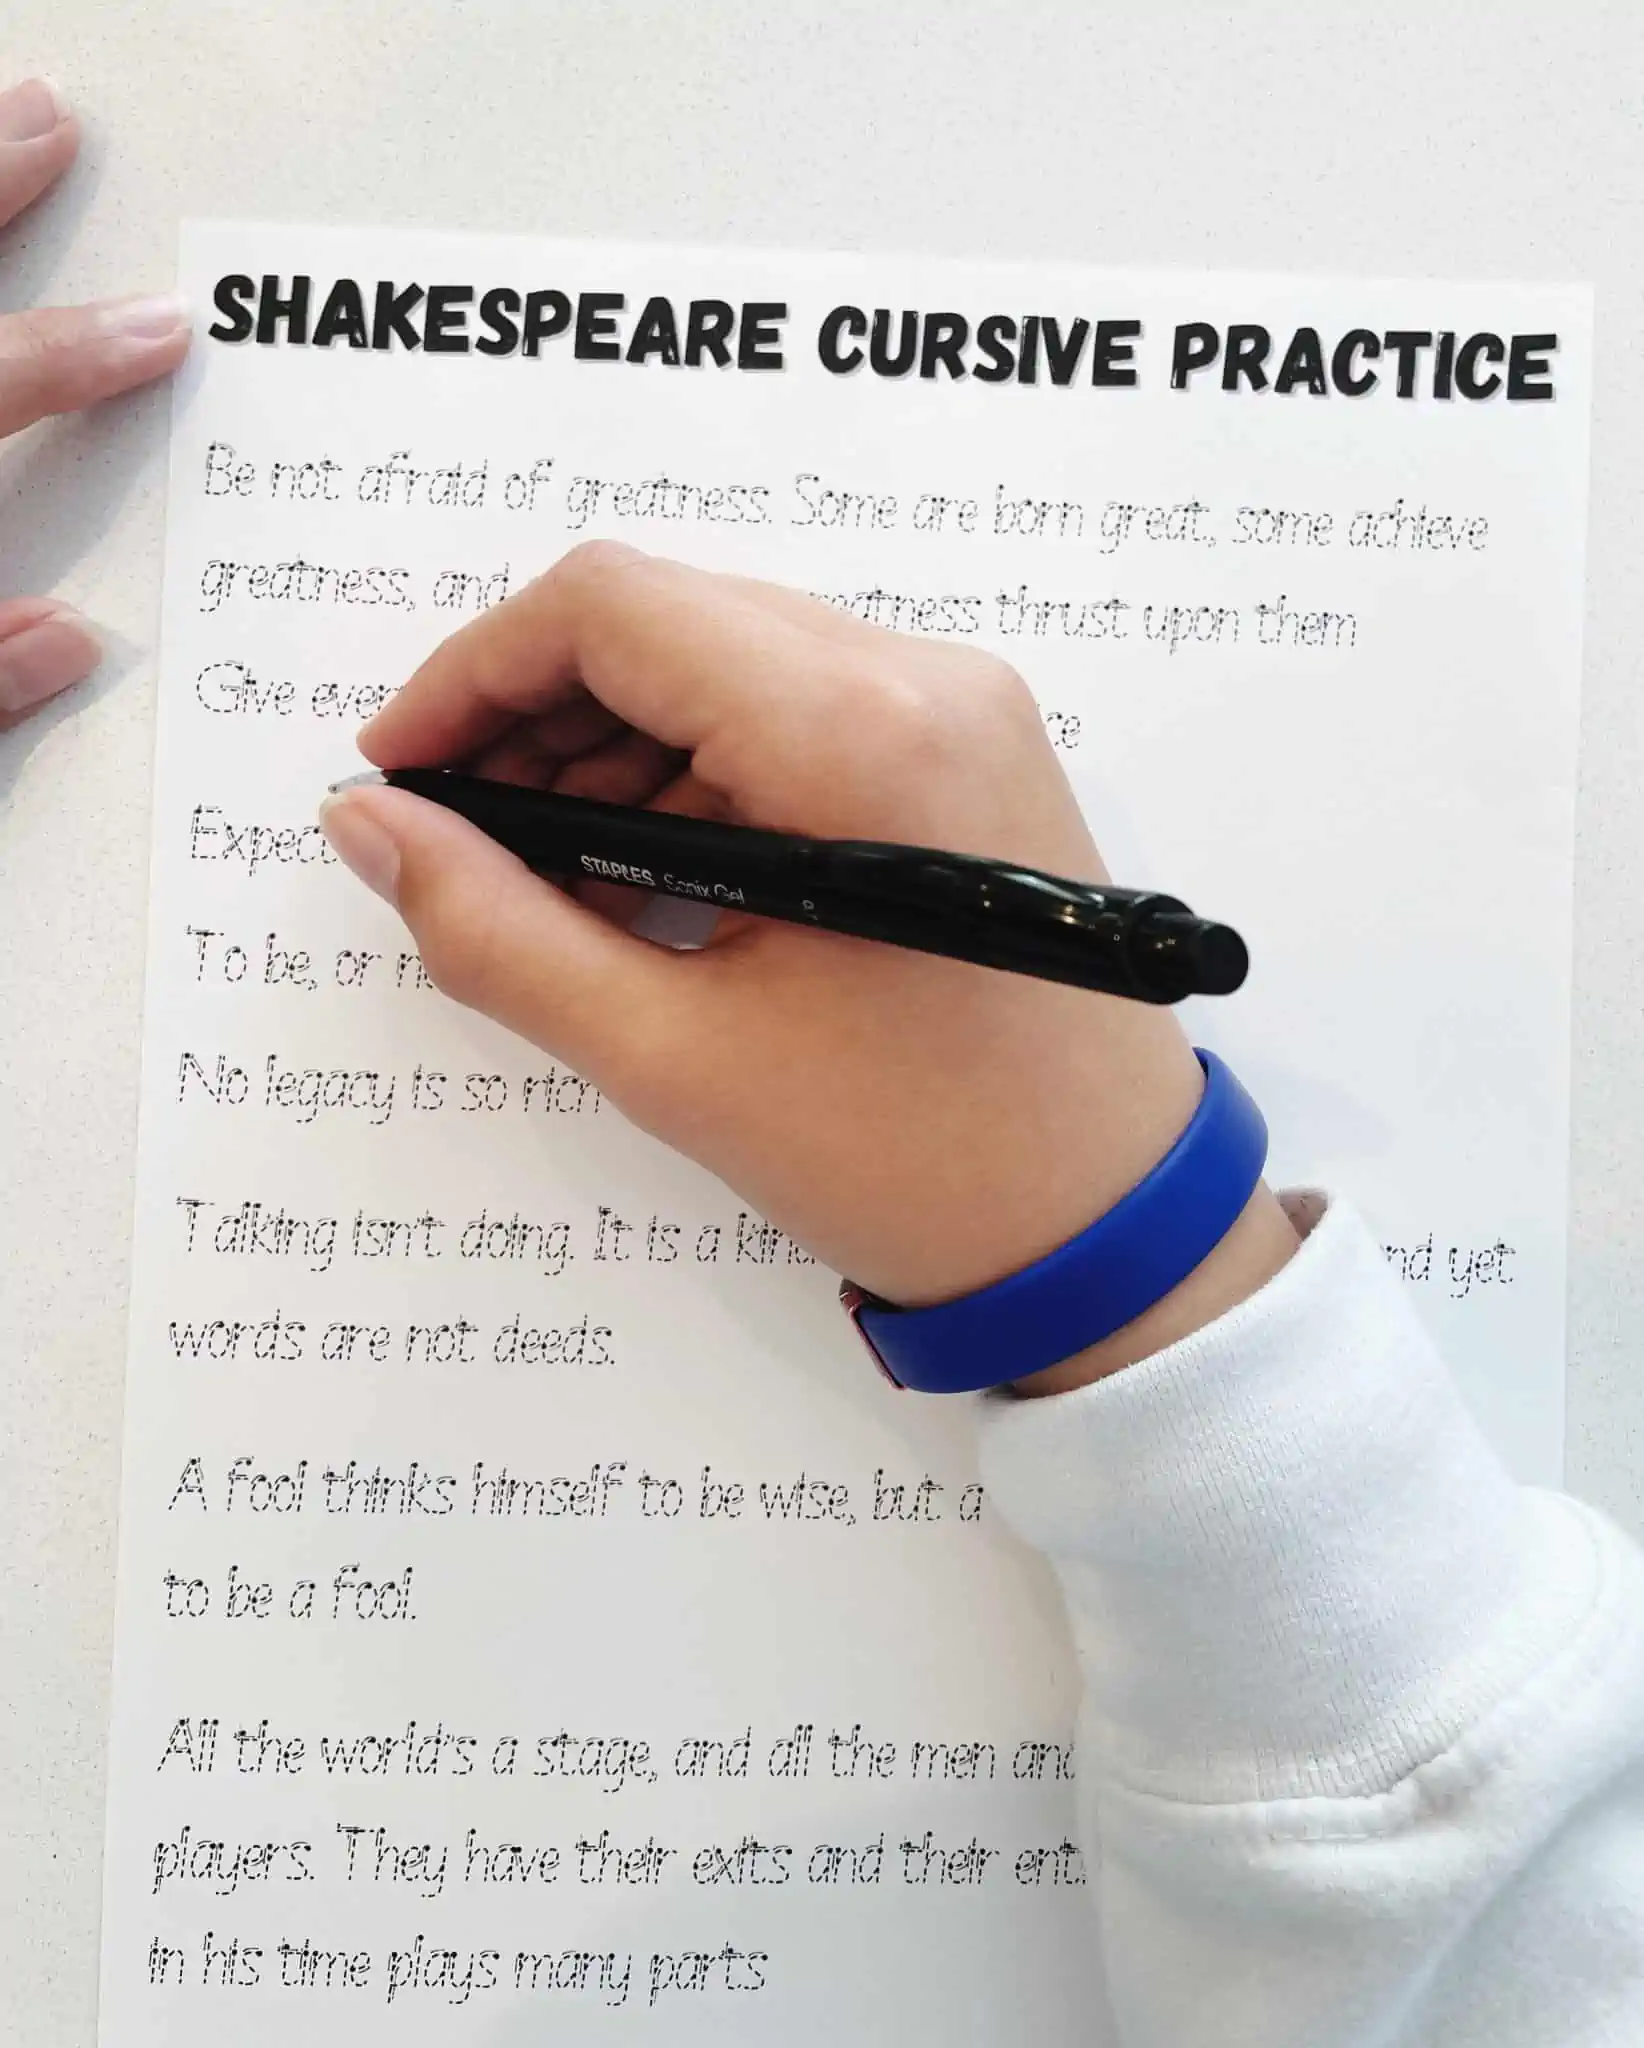 SHAKESPEARE CURSIVE PRACTICE
Be not afraid of greatness. Some are born great, some achieve
greatness, and greatness thrust upon them
Give
Expect
To be, or
No legacy is so rich
STAPLES Sonix Gel
Talking isn't doing. It is a kind and yet
words are not deeds.
A fool thinks himself to be wise, but a
to be a fool.
All the world's a stage, and all the men and
players. They have their exits and their
in his time plays many parts